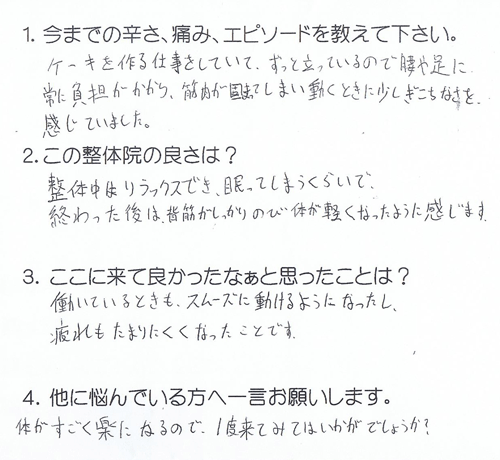 1. 今までの辛さ、痛み、エピソードを教えて下さい。
ケーキを作る仕事をしていて、ずっと立っているので腰や足に
常に負担がかかり、筋肉が固まってしまい動くときに少しぎこちなさを、
感じていました。
2.この整体院の良さは？
整体中はリラックスでき、眠ってしまうくらいで、
終わった後は、背筋がしっかりのび体が軽くなったように感じます
3. ここに来て良かったなぁと思ったことは？
働いているときも、スムーズに動けるようになったし、
疲れもたまりにくくなったことです。
4. 他に悩んでいる方へ一言お願いします。
体がすごく楽になるので、1度来てみてはいかがでしょうか？